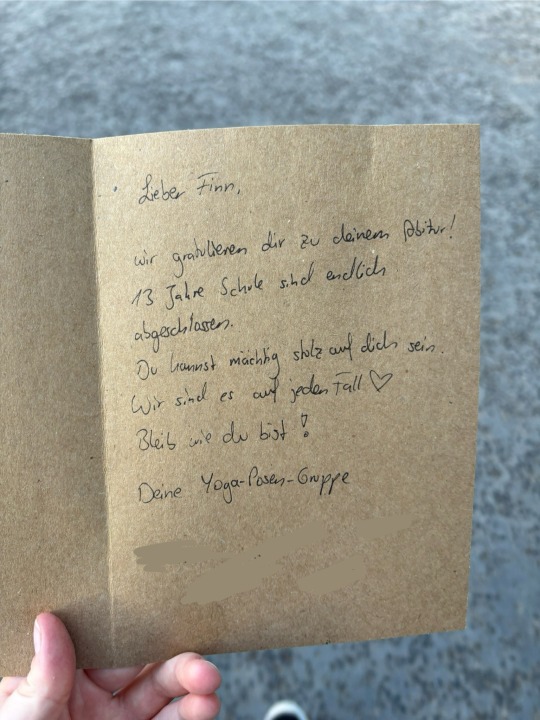 Lieber Finn,
wir gratulieren dir zu deinem Abitur!
13 Jahre Schule sind endlich
abgeschlossen.
Du kannst mächtig stolz auf dich sein.
Wir sind es auf jeden Fall ♡
Bleib wie du bist!
Deine Yoga-Posen-Gruppe